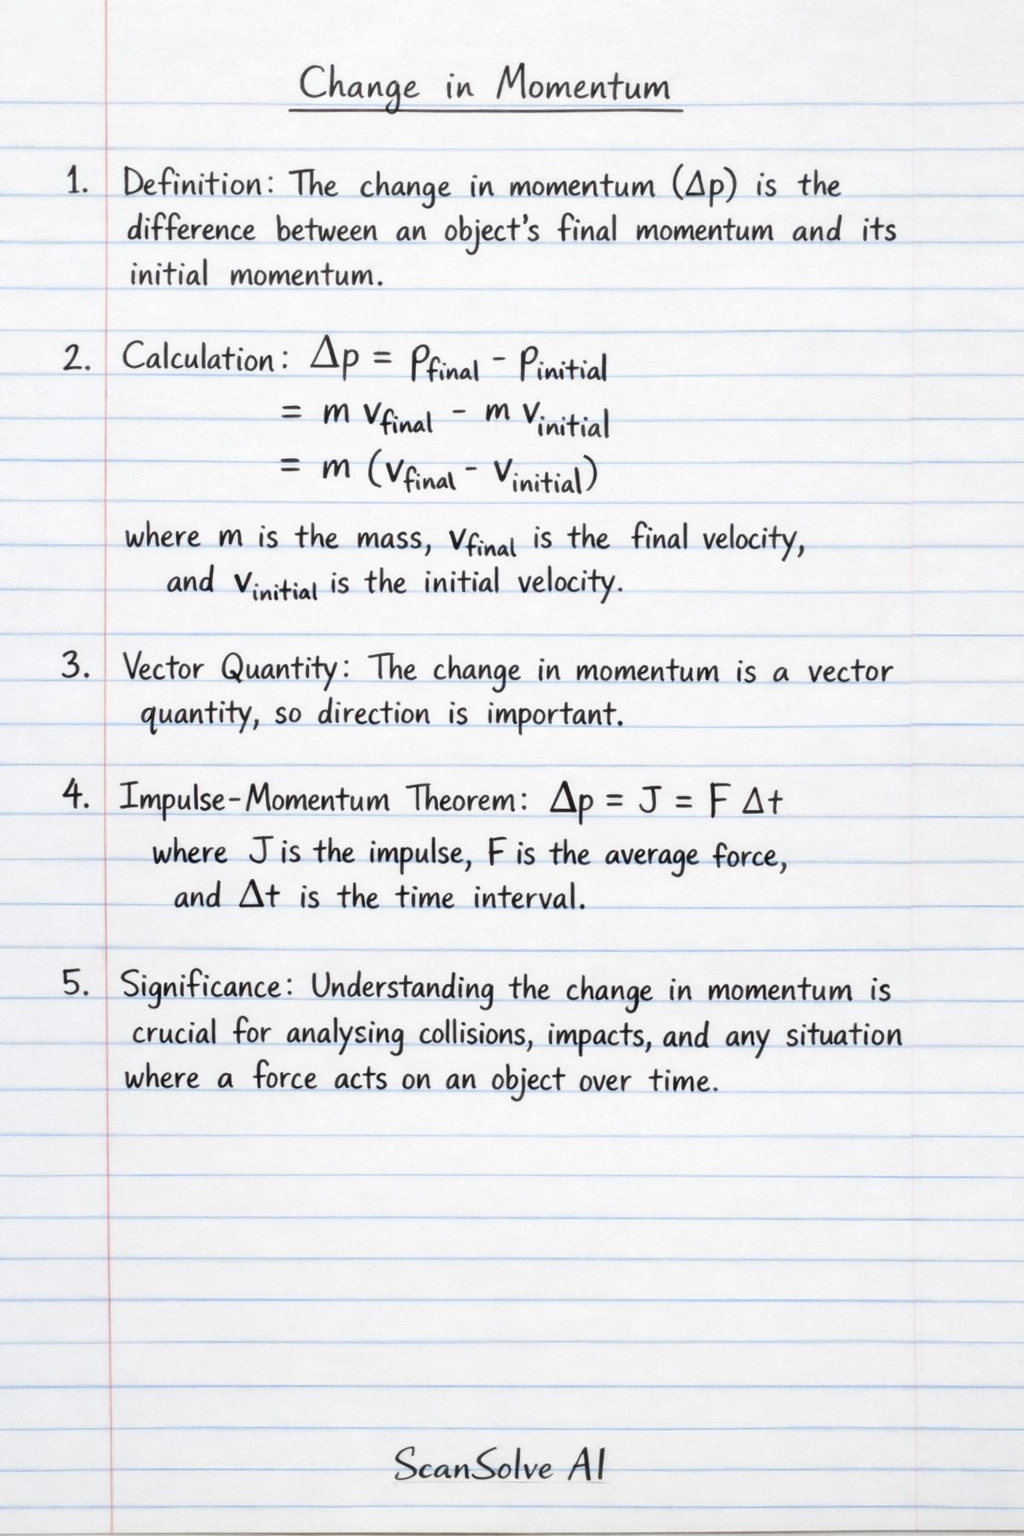 Change in Momentum
1. Definition: The change in momentum (Δp) is the
difference between an object's final momentum and its
initial momentum.
2. Calculation: Δp = p_final - p_initial
= m v_final - m v_initial
= m (v_final - v_initial)
where m is the mass, v_final is the final velocity,
and v_initial is the initial velocity.
3. Vector Quantity: The change in momentum is a vector
quantity, so direction is important.
4. Impulse-Momentum Theorem: Δp = J = F Δt
where J is the impulse, F is the average force,
and Δt is the time interval.
5. Significance: Understanding the change in momentum is
crucial for analysing collisions, impacts, and any situation
where a force acts on an object over time.
ScanSolve AI